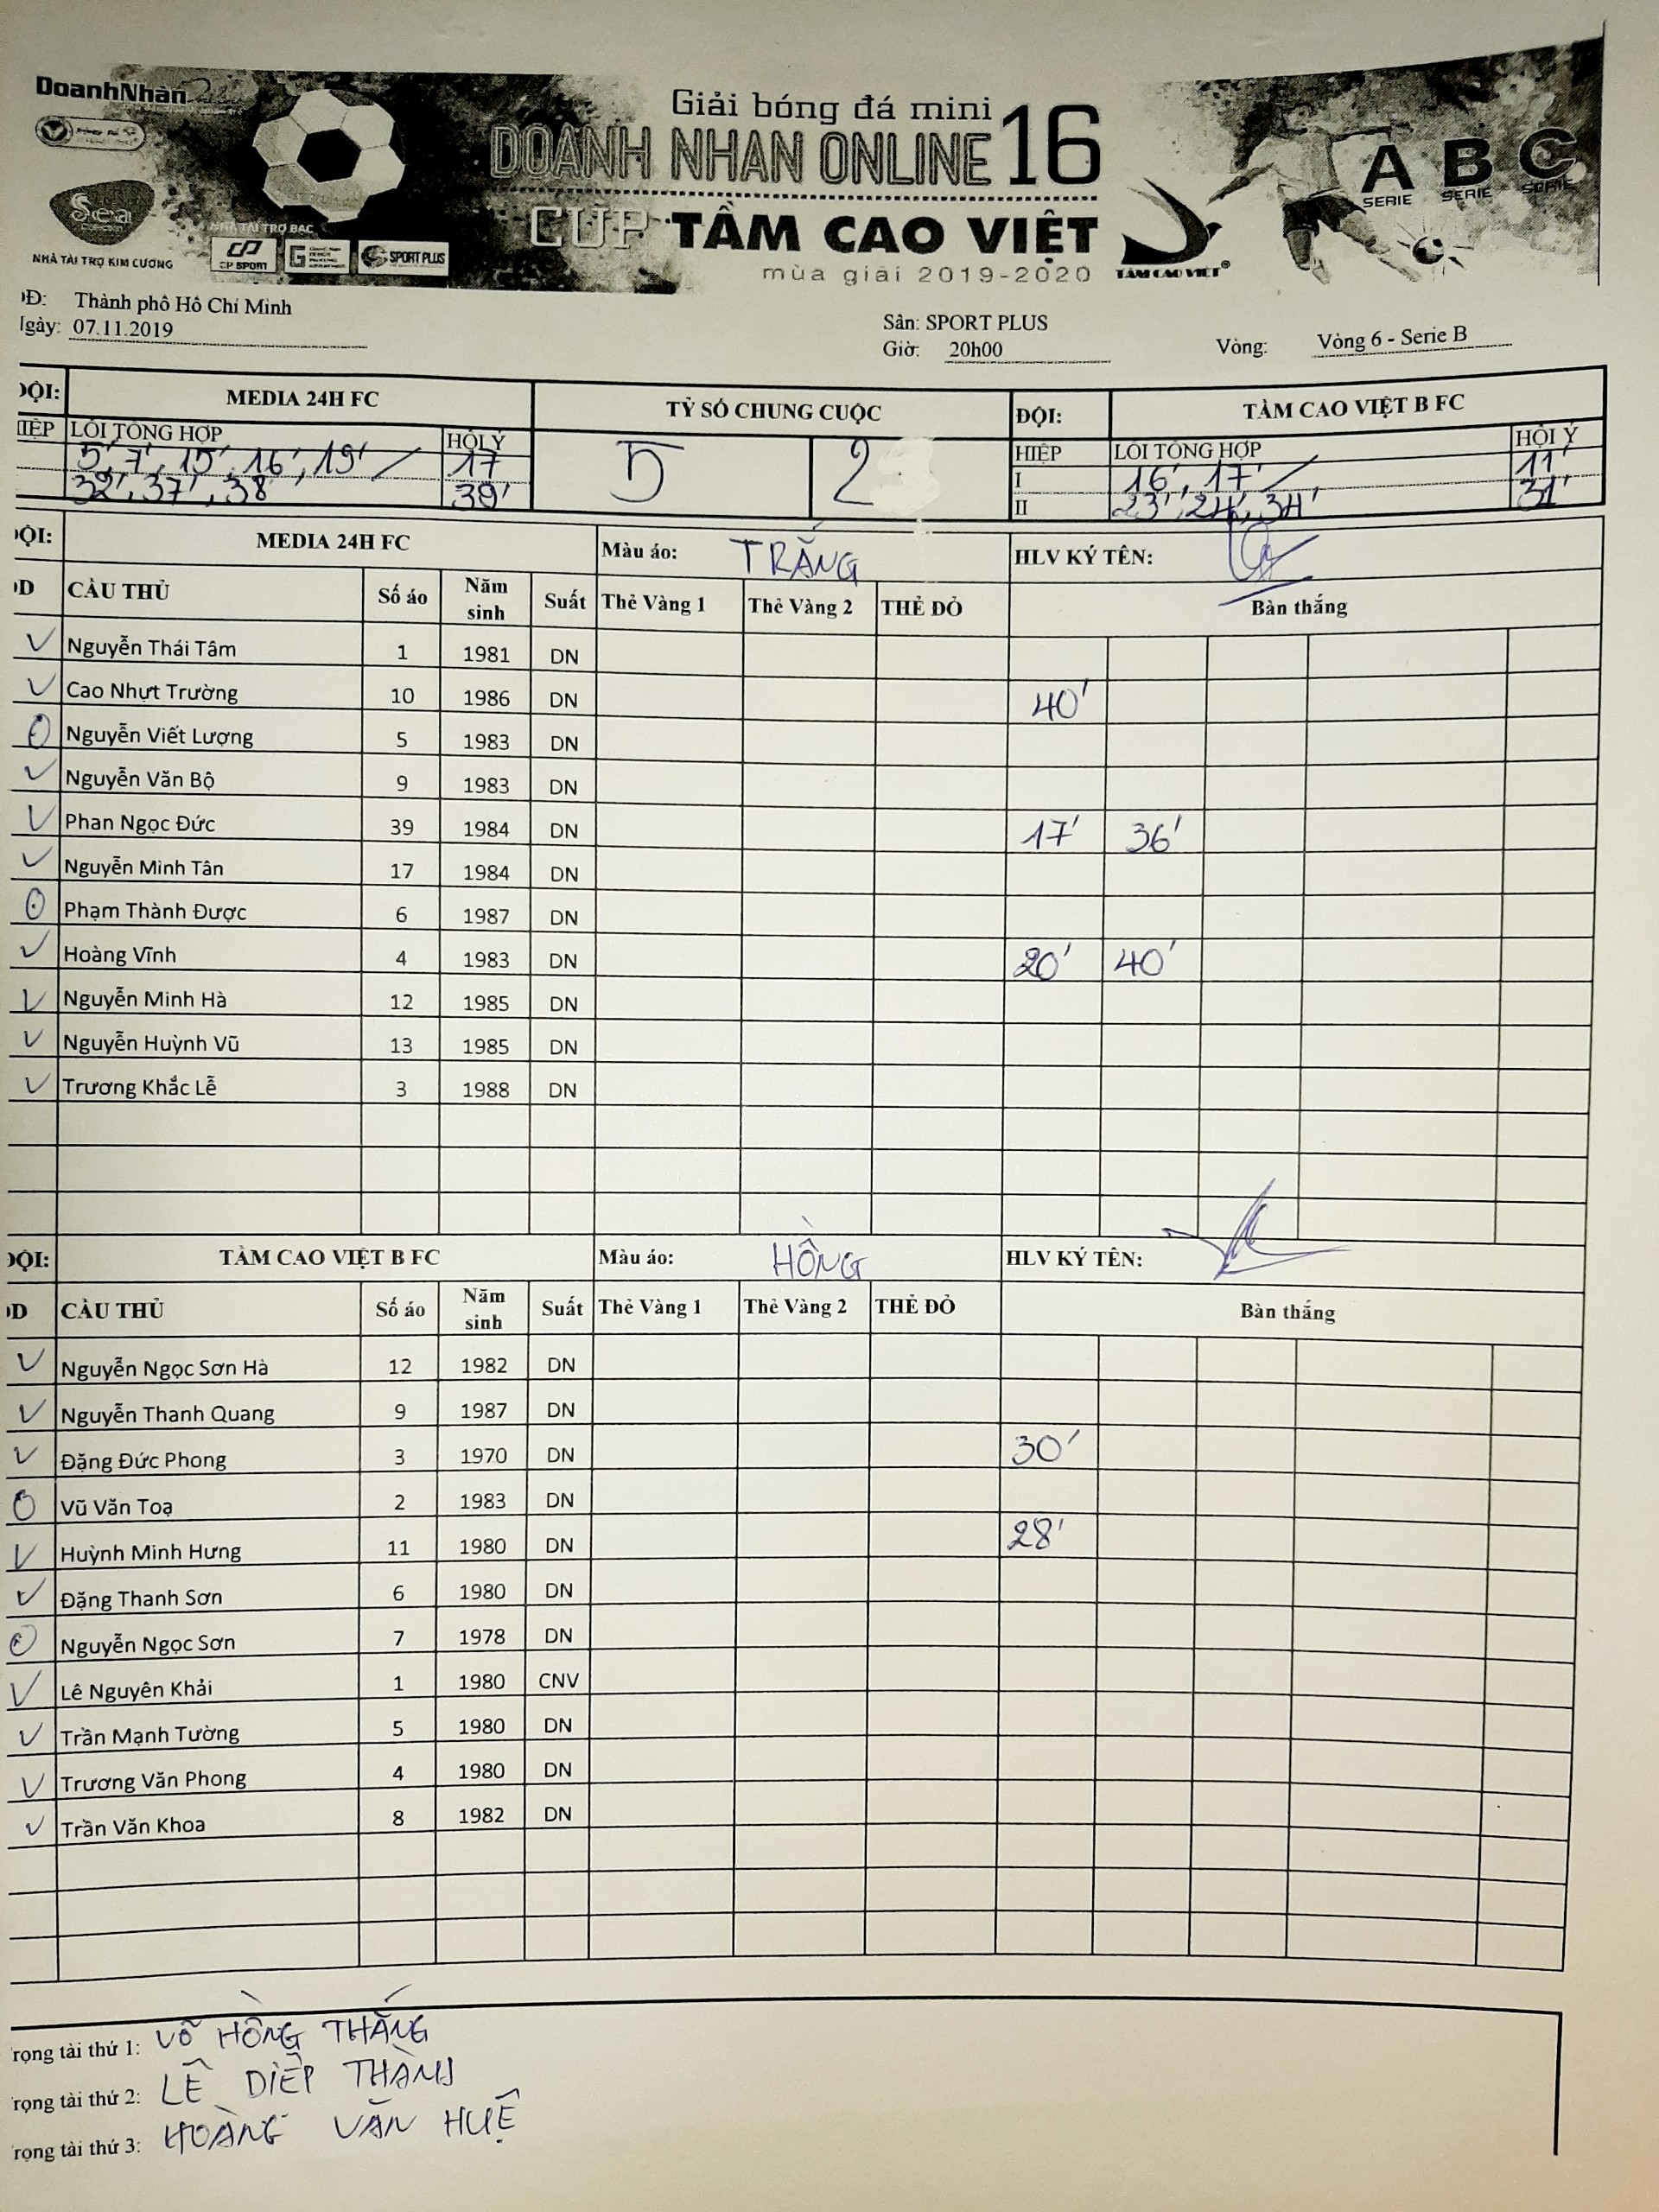 DoanhNhân
Giải bóng đá mini
DOANH NHAN ONLINE 16
CUP TẦM CAO VIỆT
mùa giải 2019-2020
TẦM CAO VIỆT®
A SERIE B SERIE C SERIE
Seal
NHÀ TÀI TRỢ KIM CƯƠNG
NHÀ TÀI TRỢ BẠC
CP SPORT
SPORT PLUS
Đ: Thành phố Hồ Chí Minh
gày: 07.11.2019
Sân: SPORT PLUS
Giờ: 20h00
Vòng: Vòng 6 - Serie B
ĐỘI: MEDIA 24H FC TỶ SỐ CHUNG CUỘC ĐỘI: TẦM CAO VIỆT B FC
HIỆP LỖI TỔNG HỢP HỘI Ý 5 2 HIỆP LỖI TỔNG HỢP HỘI Ý
5', 7', 15', 16', 19' / 17 I 16', 17' / 11'
32', 37', 38' 39' II 23', 24', 34' 31'
ĐỘI: MEDIA 24H FC Màu áo: TRẮNG HLV KÝ TÊN:
D CẦU THỦ Số áo Năm sinh Suất Thẻ Vàng 1 Thẻ Vàng 2 THẺ ĐỎ Bàn thắng
Nguyễn Thái Tâm 1 1981 DN
Cao Nhựt Trường 10 1986 DN 40'
Nguyễn Viết Lượng 5 1983 DN
Nguyễn Văn Bộ 9 1983 DN
Phan Ngọc Đức 39 1984 DN 17' 36'
Nguyễn Minh Tân 17 1984 DN
Phạm Thành Được 6 1987 DN
Hoàng Vĩnh 4 1983 DN 20' 40'
Nguyễn Minh Hà 12 1985 DN
Nguyễn Huỳnh Vũ 13 1985 DN
Trương Khắc Lễ 3 1988 DN
ĐỘI: TẦM CAO VIỆT B FC Màu áo: HỒNG HLV KÝ TÊN:
D CẦU THỦ Số áo Năm sinh Suất Thẻ Vàng 1 Thẻ Vàng 2 THẺ ĐỎ Bàn thắng
Nguyễn Ngọc Sơn Hà 12 1982 DN
Nguyễn Thanh Quang 9 1987 DN
Đặng Đức Phong 3 1970 DN 30'
Vũ Văn Toạ 2 1983 DN
Huỳnh Minh Hưng 11 1980 DN 28'
Đặng Thanh Sơn 6 1980 DN
Nguyễn Ngọc Sơn 7 1978 DN
Lê Nguyên Khải 1 1980 CNV
Trần Mạnh Tường 5 1980 DN
Trương Văn Phong 4 1980 DN
Trần Văn Khoa 8 1982 DN
rọng tài thứ 1: VÕ HỒNG THẮNG
rọng tài thứ 2: LÊ DIỆP THÀNH
rọng tài thứ 3: HOÀNG VĂN HUỆ